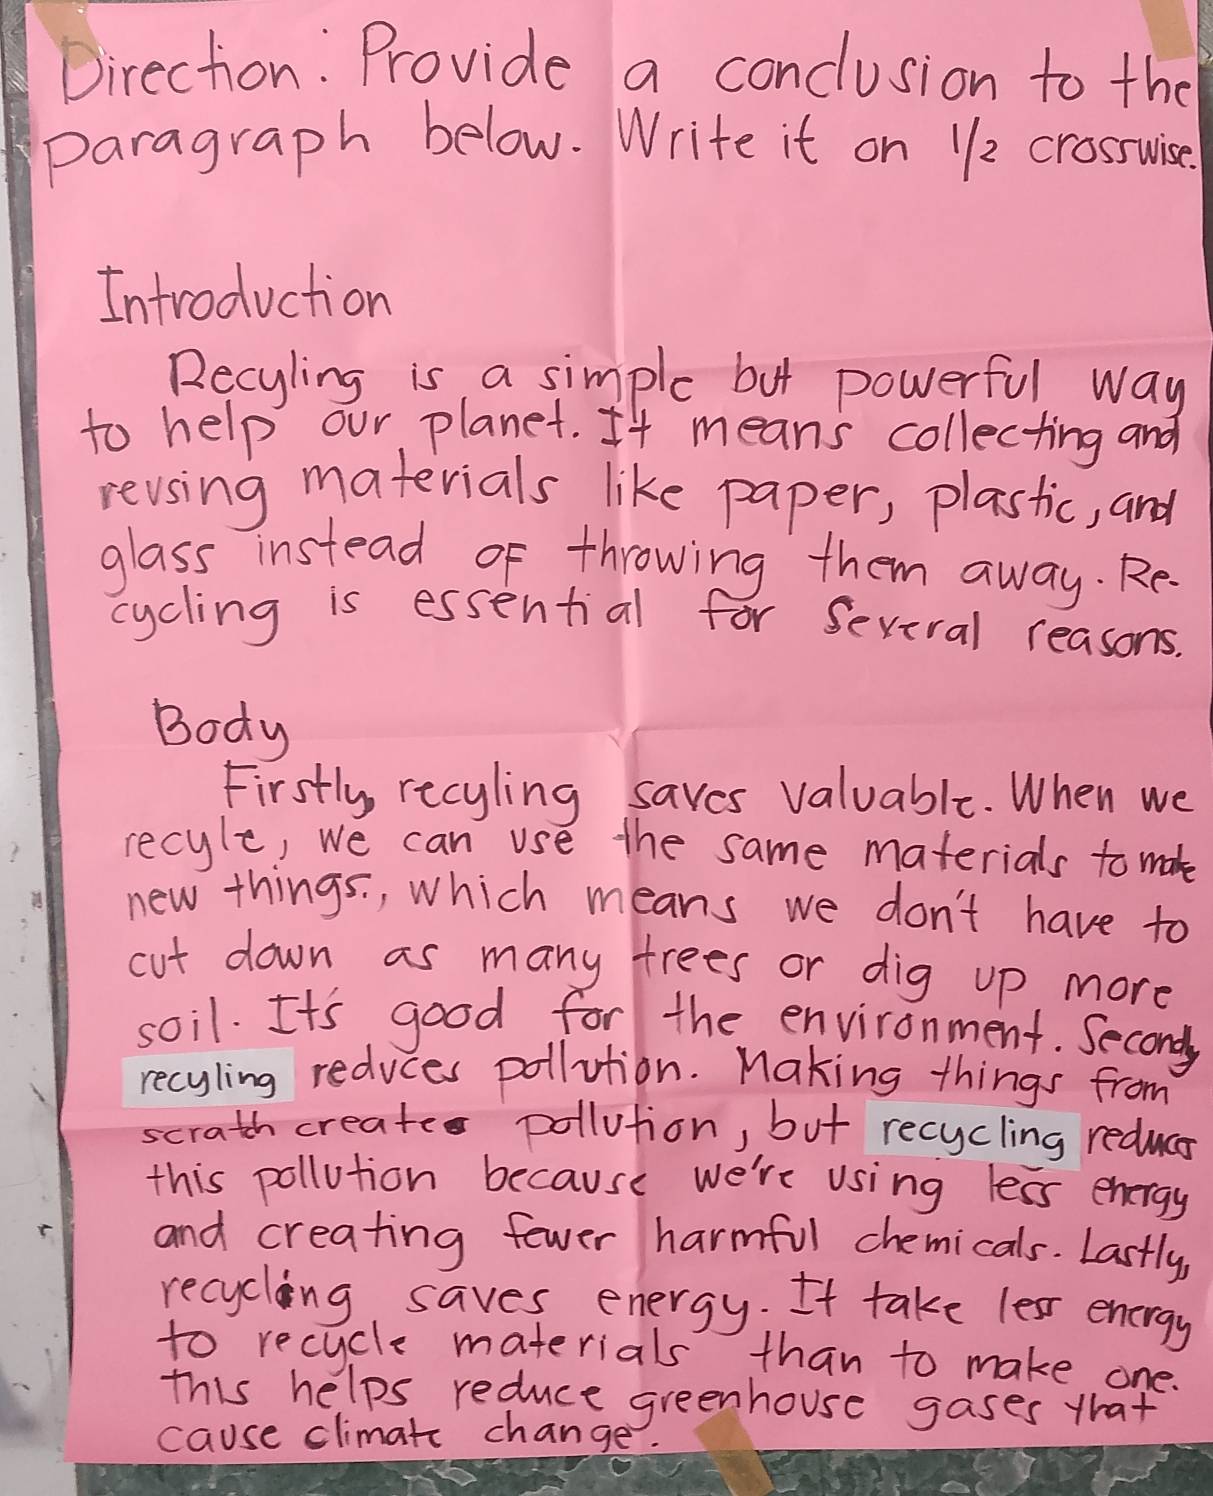 Direction: Provide a conclusion to the
paragraph below. Write it on 1/2 crosswise.
Introduction
Recyling is a simple but powerful way
to help our planet. It means collecting and
reusing materials like paper, plastic, and
glass instead of throwing them away. Re-
cycling is essential for several reasons.
Body
Firstly, recyling saves valuable. When we
recyle, we can use the same materials to make
new things., which means we don't have to
cut down as many trees or dig up more
soil. It's good for the environment. Secondly
recyling reduces pollution. Making things from
scratch creates pollution, but recycling reduces
this pollution because we're using less energy
and creating fewer harmful chemicals. Lastly,
recycling saves energy. It take less energy
to recycle materials than to make one.
This helps reduce greenhouse gases that
cause climate change.